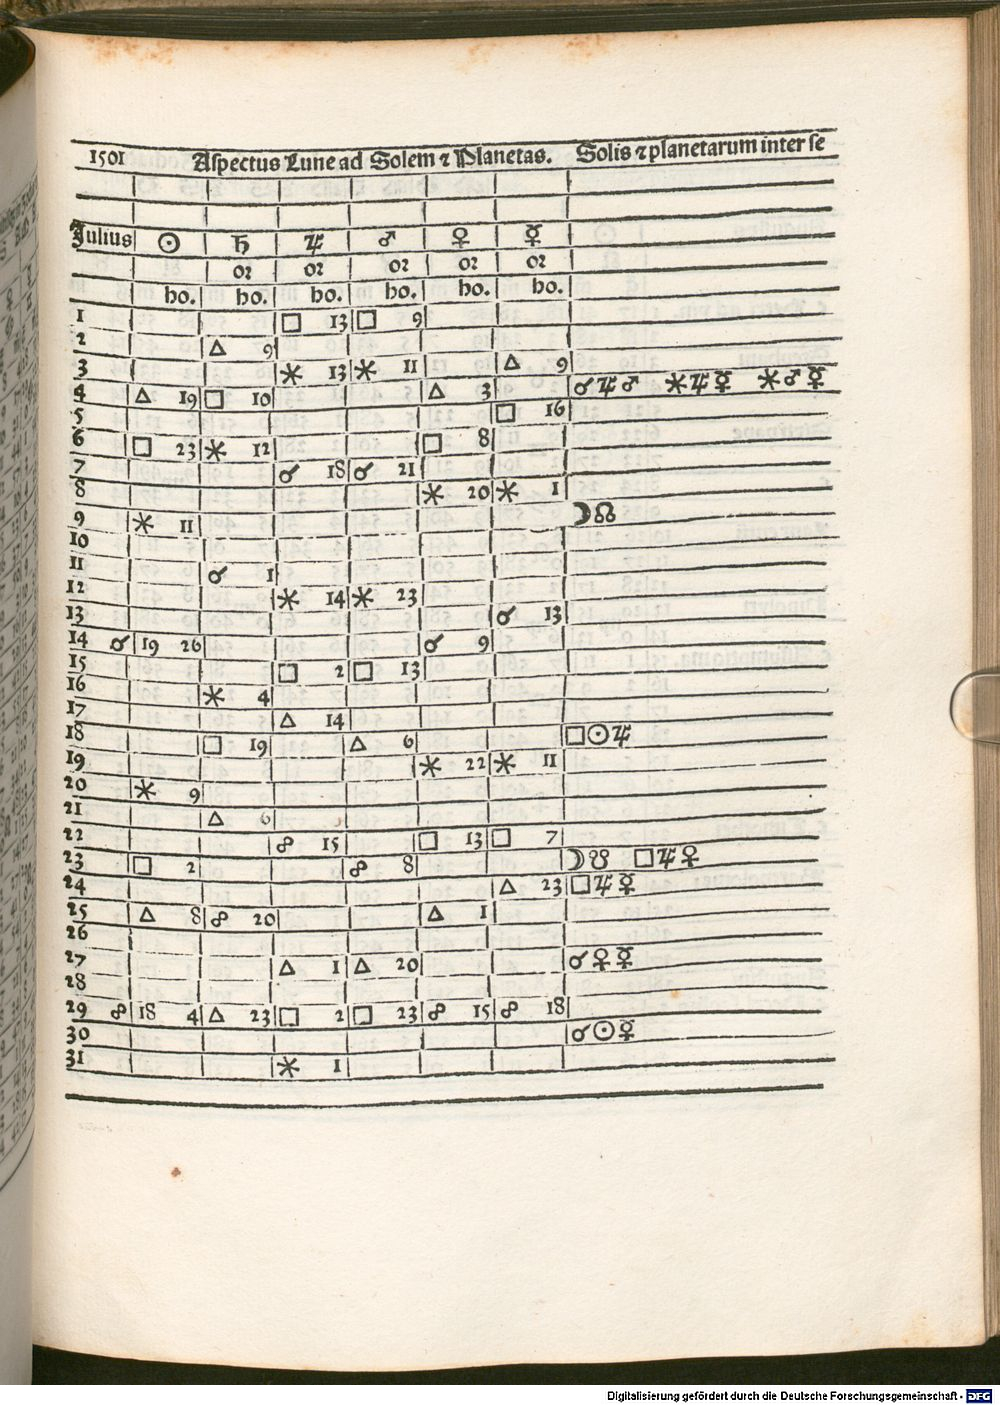 1501 Aspectus Lune ad Solem ⁊ Planetas. Solis ⁊ planetarum inter se
Julius ☉ ♄ ♃ ♂ ♀ ☿
oꝛ oꝛ oꝛ oꝛ oꝛ
ho. ho. ho. ho. ho. ho.
1 □ 13 □ 9
2 △ 9
3 ⚹ 13 ⚹ 11 △ 9
4 △ 19 □ 10 △ 3 ☌♃♂ ⚹♃☿ ⚹♂☿
5 □ 16
6 □ 23 ⚹ 12 □ 8
7 ☌ 18 ☌ 21
8 ⚹ 20 ⚹ 1
9 ⚹ 11 ☽☊
10
11 ☌ 1
12 ⚹ 14 ⚹ 23
13 ☌ 13
14 ☌ 19 26 ☌ 9
15 □ 2 □ 13
16 ⚹ 4
17 △ 14
18 □ 19 △ 6 □☉♃
19 ⚹ 22 ⚹ 11
20 ⚹ 9
21 △ 6
22 ☍ 15 □ 13 □ 7
23 □ 2 ☍ 8 ☽☋ □♃♀
24 △ 23 □♃☿
25 △ 8 ☍ 20 △ 1
26
27 △ 1 △ 20 ☌♀☿
28
29 ☍ 18 4 △ 23 □ 2 □ 23 ☍ 15 ☍ 18
30 ☌☉☿
31 ⚹ 1
Digitalisierung gefördert durch die Deutsche Forschungsgemeinschaft - DFG